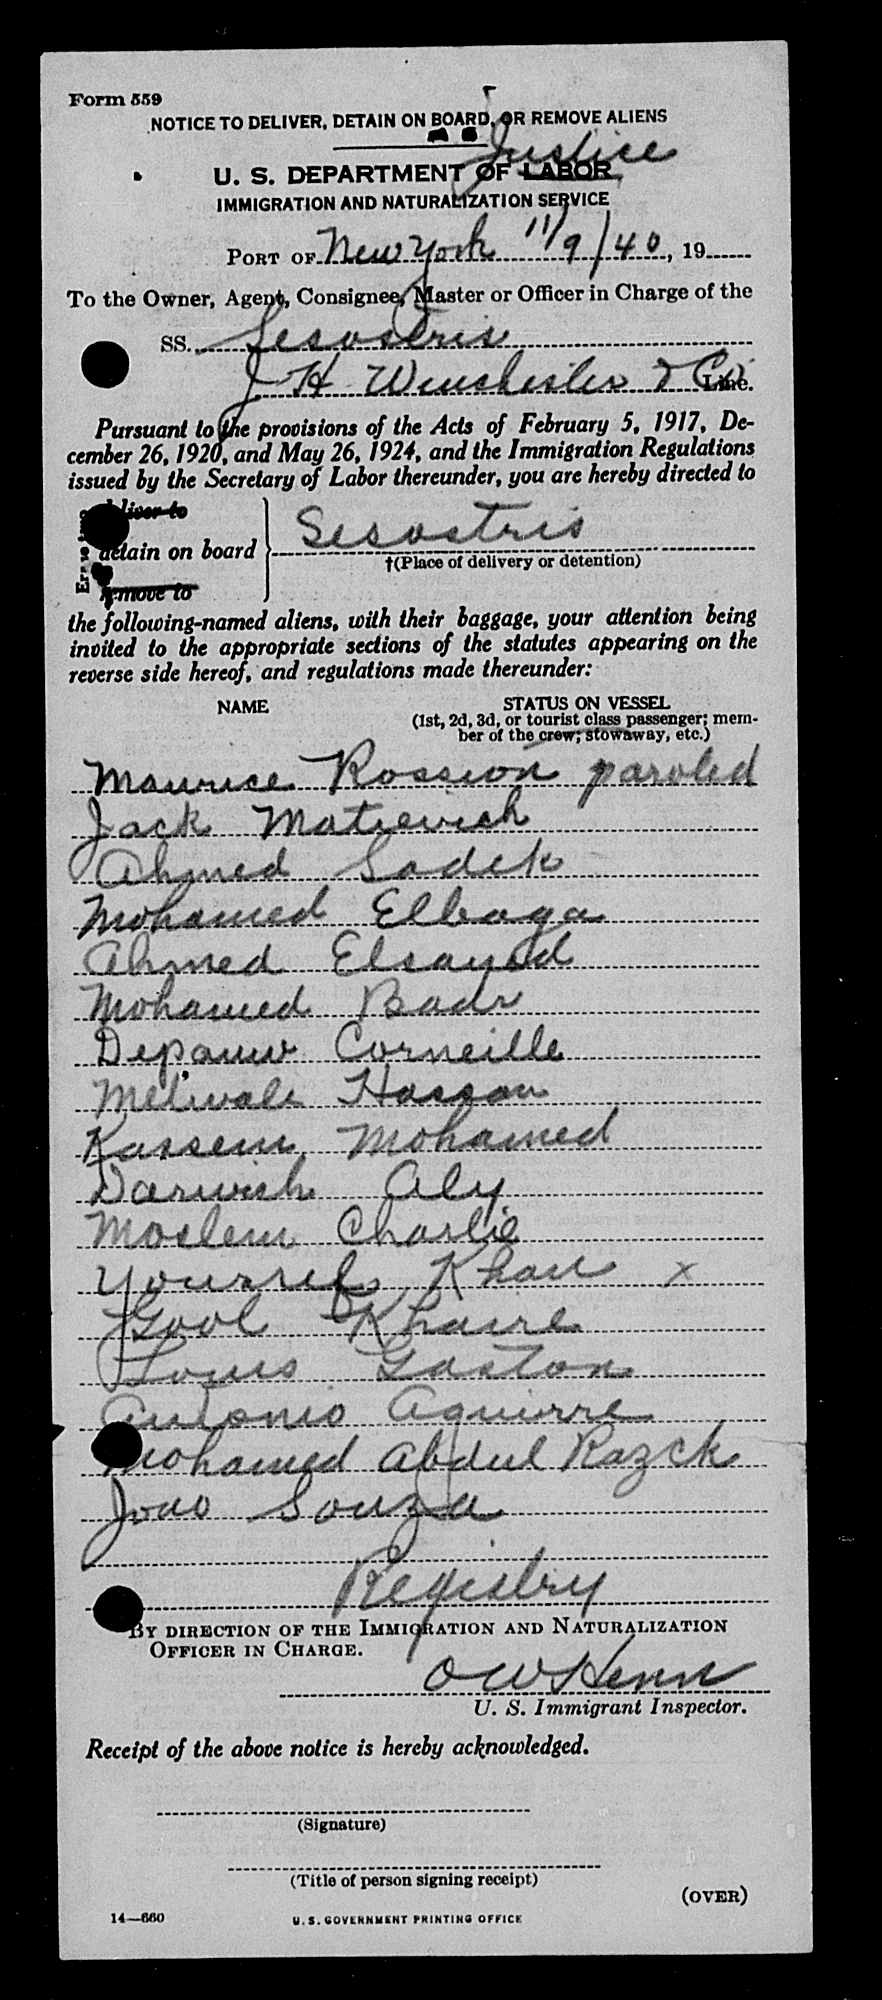 Form 559
NOTICE TO DELIVER, DETAIN ON BOARD, OR REMOVE ALIENS
Justice
U. S. DEPARTMENT OF LABOR
IMMIGRATION AND NATURALIZATION SERVICE
PORT OF New York 11/9/40, 19
To the Owner, Agent, Consignee, Master or Officer in Charge of the
SS. Sesostris
J H Winchester & Co Line.
Pursuant to the provisions of the Acts of February 5, 1917, De-
cember 26, 1920, and May 26, 1924, and the Immigration Regulations
issued by the Secretary of Labor thereunder, you are hereby directed to
deliver to
detain on board Sesostris
†(Place of delivery or detention)
remove to
the following-named aliens, with their baggage, your attention being
invited to the appropriate sections of the statutes appearing on the
reverse side hereof, and regulations made thereunder:
NAME STATUS ON VESSEL
(1st, 2d, 3d, or tourist class passenger; mem-
ber of the crew; stowaway, etc.)
Maurice Rossion paroled
Jack Matievich
Ahmed Sadek
Mohamed Elbaga
Ahmed Elsayed
Mohamed Badr
Depauw Corneille
Metwale Hassan
Kassem Mohamed
Darwish Aly
Moslem Charlie
Youssef Khan x
Gool Khaire
Louis Gaston
Antonio Aguirre
Mohamed Abdul Razck
Joao Souza
Registry
BY DIRECTION OF THE IMMIGRATION AND NATURALIZATION
OFFICER IN CHARGE.
O W Henn
U. S. Immigrant Inspector.
Receipt of the above notice is hereby acknowledged.
(Signature)
(Title of person signing receipt)
(OVER)
14—660 U. S. GOVERNMENT PRINTING OFFICE